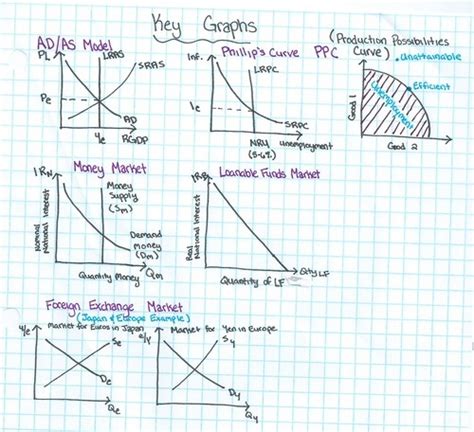 Key Graphs
AD/AS Model
PL
LRAS
SRAS
Pe
AD
Ye
RGDP
Phillip's Curve
Inf.
LRPC
Ie
SRPC
NRU unemployment
(5-6%)
PPC
(Production Possibilities
Curve)
Unattainable
Efficient
Unemployment
Good 1
Good 2
Money Market
Money
Supply
(Sm)
Demand
money
(Dm)
Nominal
National Interest
Quantity Money
Qm
Loanable Funds Market
Real
National Interest
Qty LF
Quantity of LF
Foreign Exchange Market
(Japan & Europe Example)
Market for Euros in Japan
Se
De
Qe
Market for Yen in Europe
Sy
Dy
Qy